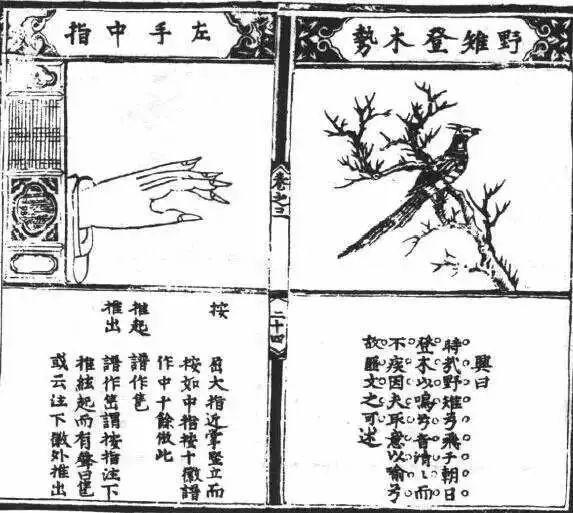 野雉登木勢
興曰
時哉野雉兮飛于朝日
登木以鳴兮音清〻而
不疾因夫取意以喻兮
故匪文之可述
卷之
二十四
左手中指
按
屈大指近掌豎立而
按如中指按十徽譜
作中十餘倣此
推起
譜作
推出
譜作謂按指注下
推絃起而有聲曰
或云注下徽外推出